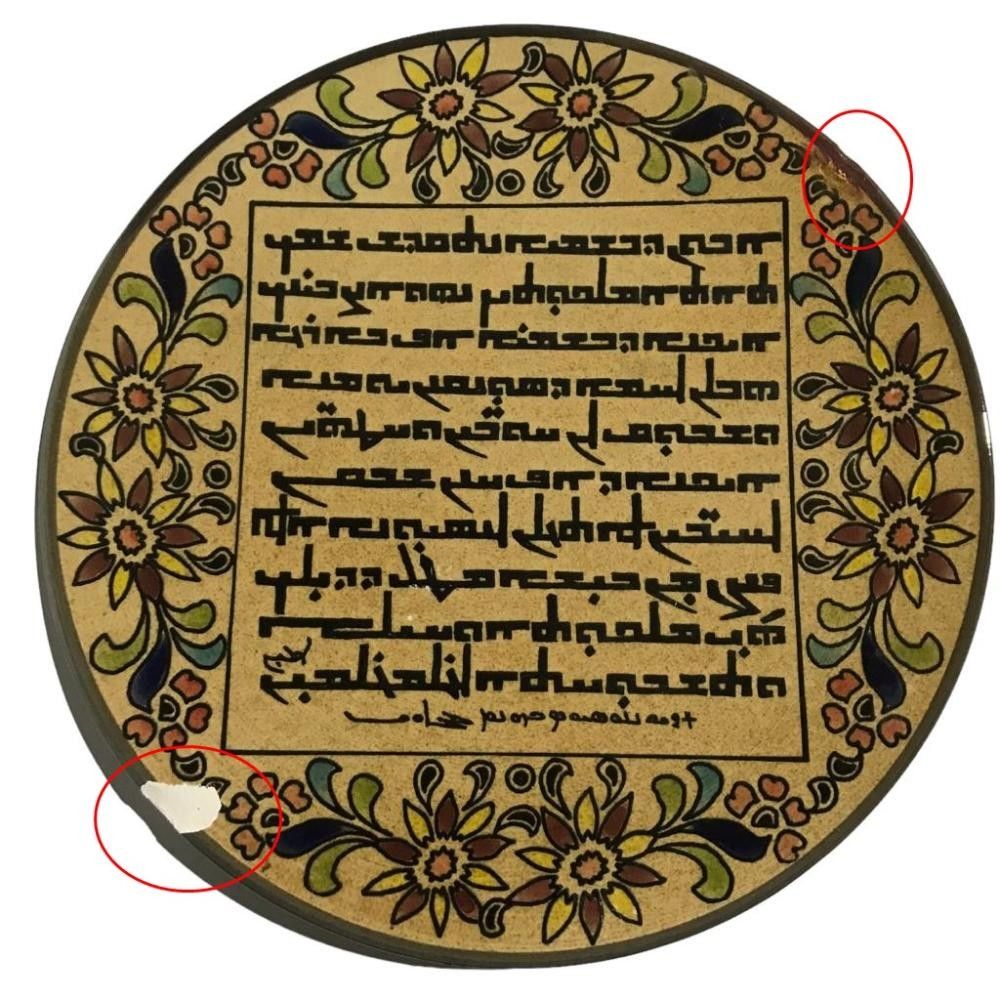 ܐܒܘܢ ܕܒܫܡܝܐ ܢܬܩܕܫ ܫܡܟ
ܬܐܬܐ ܡܠܟܘܬܟ ܢܗܘܐ ܨܒܝܢܟ
ܐܝܟܢܐ ܕܒܫܡܝܐ ܐܦ ܒܐܪܥܐ
ܗܒ ܠܢ ܠܚܡܐ ܕܣܘܢܩܢܢ ܝܘܡܢܐ
ܘܫܒܘܩ ܠܢ ܚܘܒ̈ܝܢ ܘܚܛܗ̈ܝܢ
ܐܝܟܢܐ ܕܐܦ ܚܢܢ ܫܒܩܢ
ܠܚܝ̈ܒܝܢ ܘܠܐ ܬܥܠܢ ܠܢܣܝܘܢܐ ܐܠܐ
ܦܨܢ ܡܢ ܒܝܫܐ ܡܛܠ ܕܕܝܠܟ
ܗܝ ܡܠܟܘܬܐ ܘܚܝܠܐ
ܘܬܫܒܘܚܬܐ ܠܥܠܡ ܥܠܡܝܢ